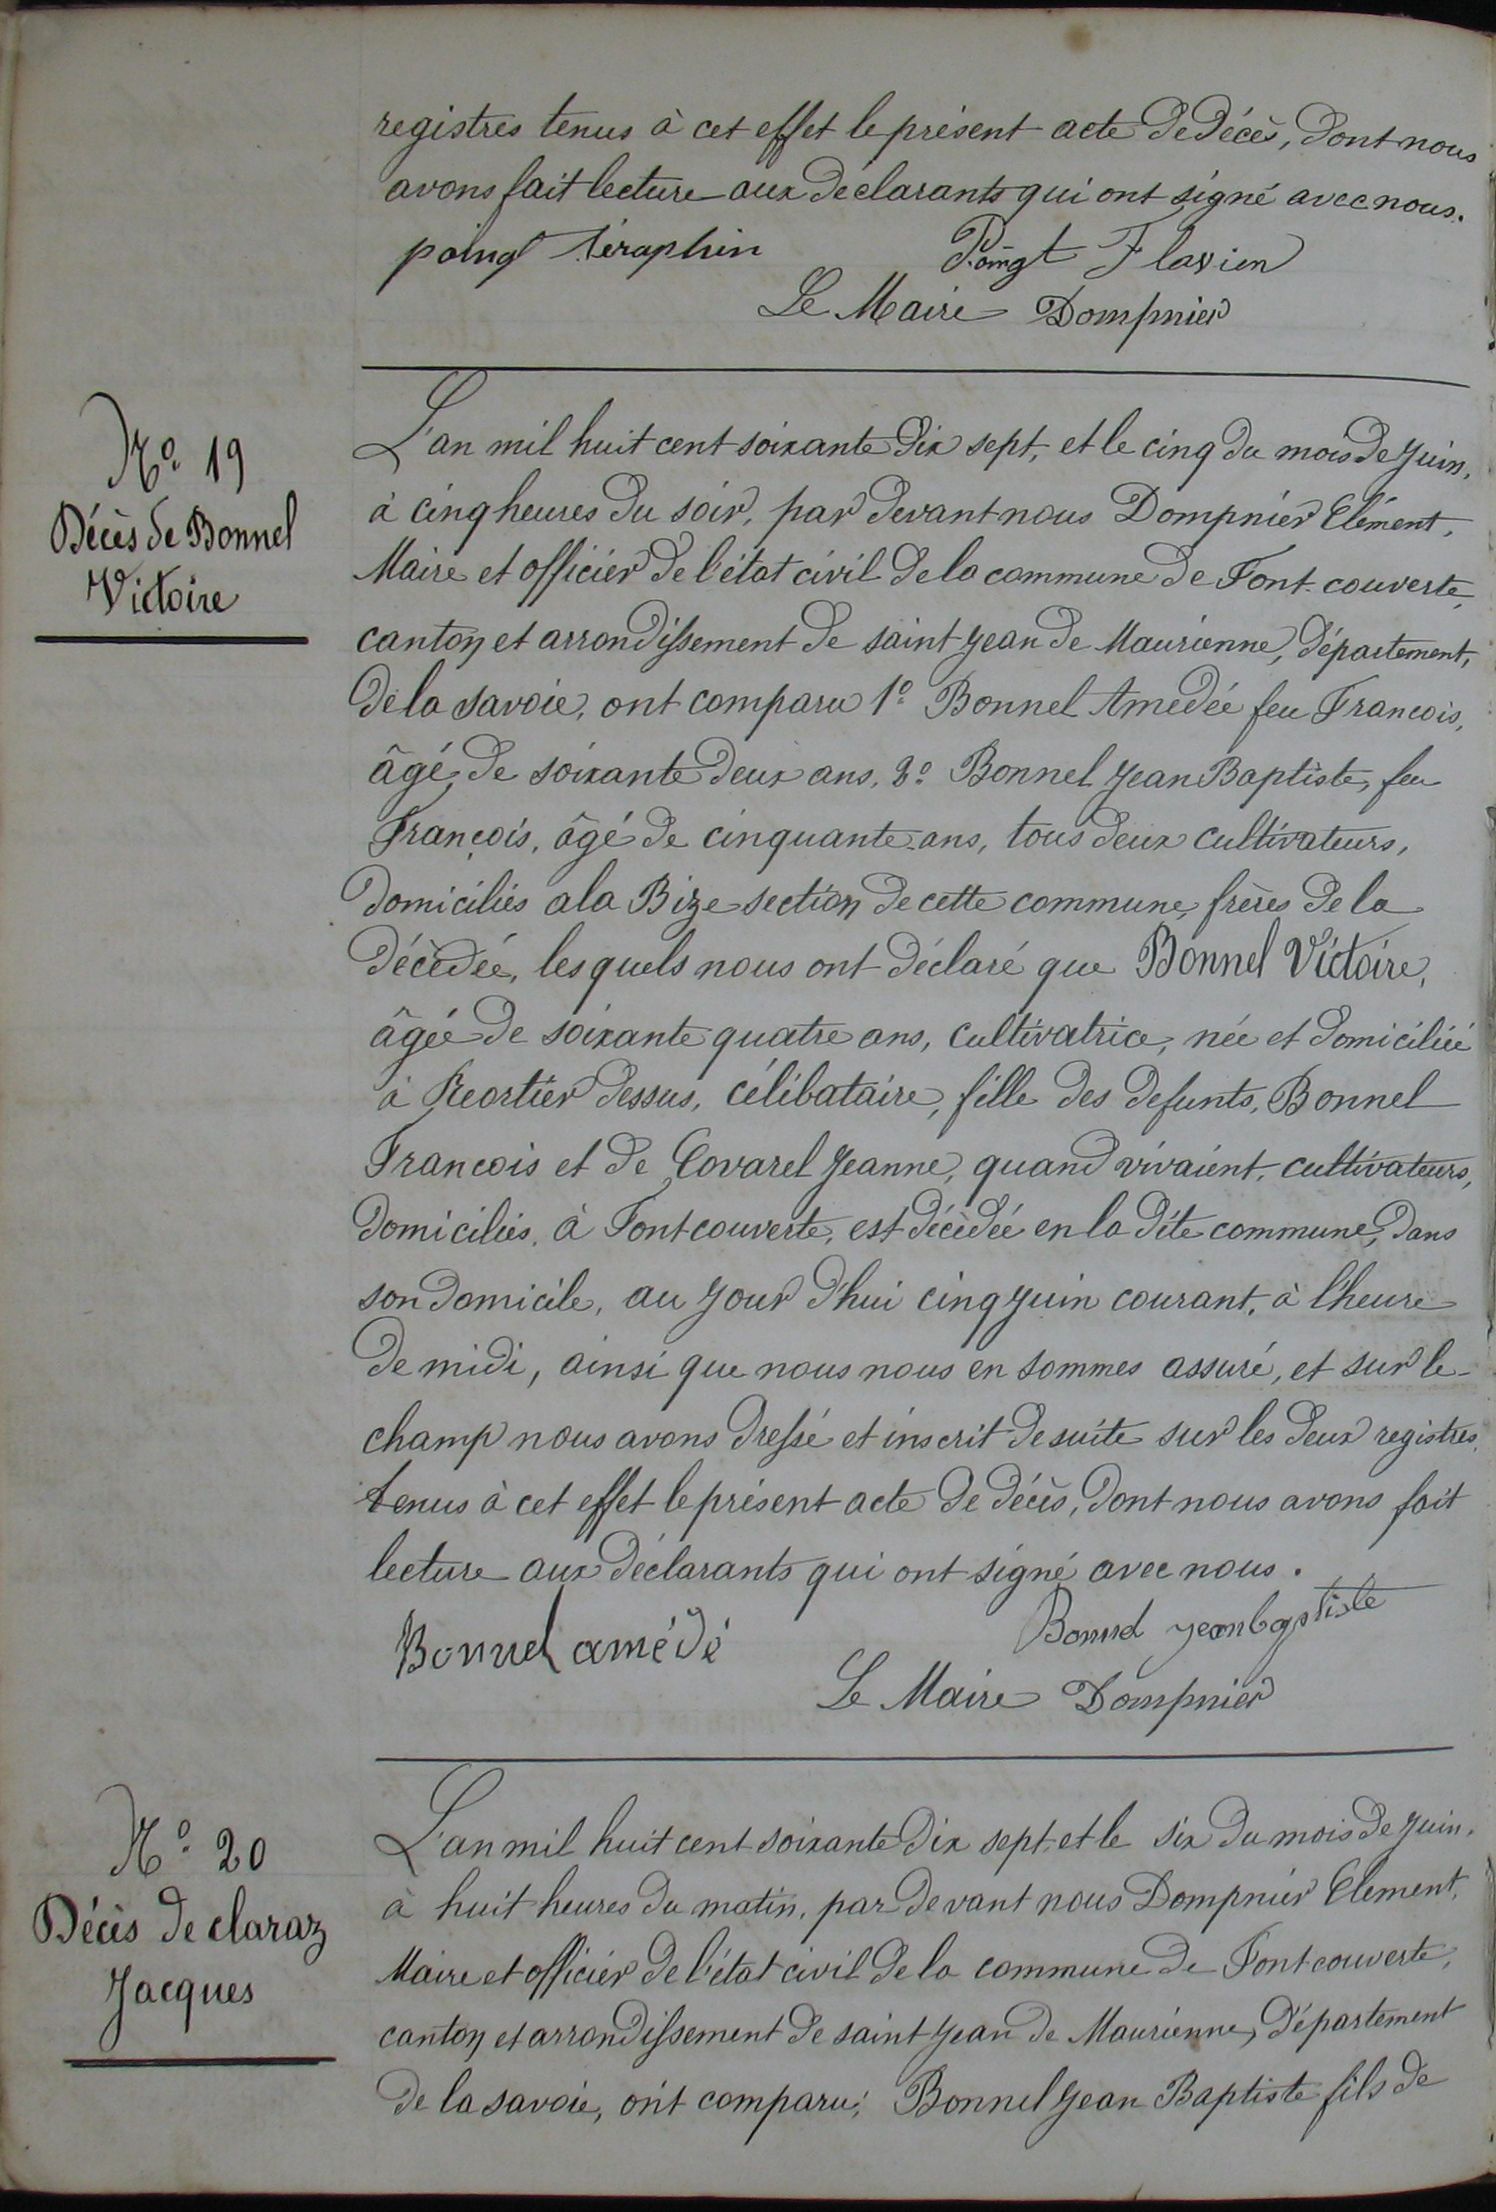 registres tenus à cet effet le présent acte de décès, dont nous
avons fait lecture aux déclarants qui ont signé avec nous.
poingt séraphin Poingt Flavien
Le Maire Dompnier
N° 19
Décès de Bonnel
Victoire
L'an mil huit cent soixante dix sept, et le cinq du mois de Juin,
à cinq heures du soir, par devant nous Dompnier Clément,
Maire et officier de l'état civil de la commune de Font-couverte,
canton et arrondissement de saint Jean de Maurienne, département,
de la savoie, ont comparu 1° Bonnel Amedée feu Francois,
âgé de soixante deux ans, 2° Bonnel Jean Baptiste, feu
François, âgé de cinquante ans, tous deux cultivateurs,
domiciliés a la Bize section de cette commune, frères de la
décédée, lesquels nous ont déclaré que Bonnel Victoire,
âgée de soixante quatre ans, cultivatrice, née et domiciliée
à Reortier dessus, célibataire, fille des defunts, Bonnel
Francois et de Covarel Jeanne, quand vivaient, cultivateurs,
domiciliés, à Fontcouverte, est décédée en la dite commune, dans
son domicile, au jour d'hui cinq juin courant, à l'heure
de midi, ainsi que nous nous en sommes assuré, et sur le-
champ nous avons dressé et inscrit de suite sur les deux registres,
tenus à cet effet le présent acte de décès, dont nous avons fait
lecture aux déclarants qui ont signé avec nous.
Bonnel amédé Bonnel jean baptiste
Le Maire Dompnier
N° 20
Décès de claraz
Jacques
L'an mil huit cent soixante dix sept, et le six du mois de juin,
à huit heures du matin, par devant nous Dompnier Clement,
Maire et officier de l'état civil de la commune de Fontcouverte,
canton et arrondissement de saint Jean de Maurienne, département
de la savoie, ont comparu; Bonnel Jean Baptiste fils de